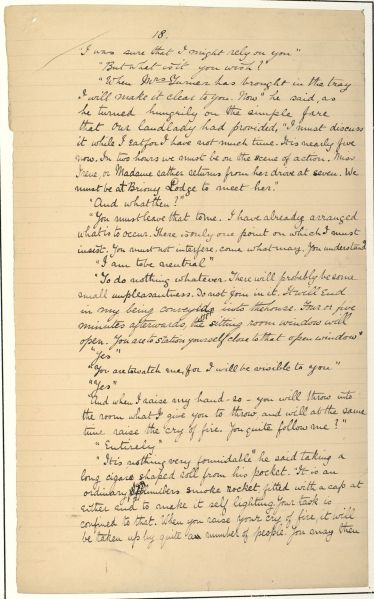 18.
"I was sure that I might rely on you"
"But what is it you wish?"
"When Mrs Turner has brought in the tray
I will make it clear to you. Now" he said, as
he turned hungrily on the simple fare
that our landlady had provided, "I must discuss
it while I eat for I have not much time. It is nearly five
now. In two hours we must be on the scene of action. Miss
Irene, or Madame rather returns from her drive at seven. We
must be at Briony Lodge to meet her."
"And what then?"
"You must leave that to me. I have already arranged
what is to occur. There is only one point on which I must
insist. You must not interfere, come what may. You understand
"I am to be neutral"
"To do nothing whatever. There will probably be some
small unpleasantness. Do not join in it. It will end
in my being conveyed into the house. Four or five
minutes afterwards, the sitting room window will
open. You are to station yourself close to that open window"
"Yes"
"You are to watch me, for I will be visible to you"
"Yes"
"And when I raise my hand - so - you will throw into
the room what I give you to throw, and will at the same
time raise the cry of fire. You quite follow me?"
"Entirely"
"It is nothing very formidable" he said taking a
long cigar shaped roll from his pocket. It is an
ordinary plumbers smoke rocket fitted with a cap at
either end to make it self lighting. Your task is
confined to that. When you raise your cry of fire, it will
be taken up by quite a number of people. You may then